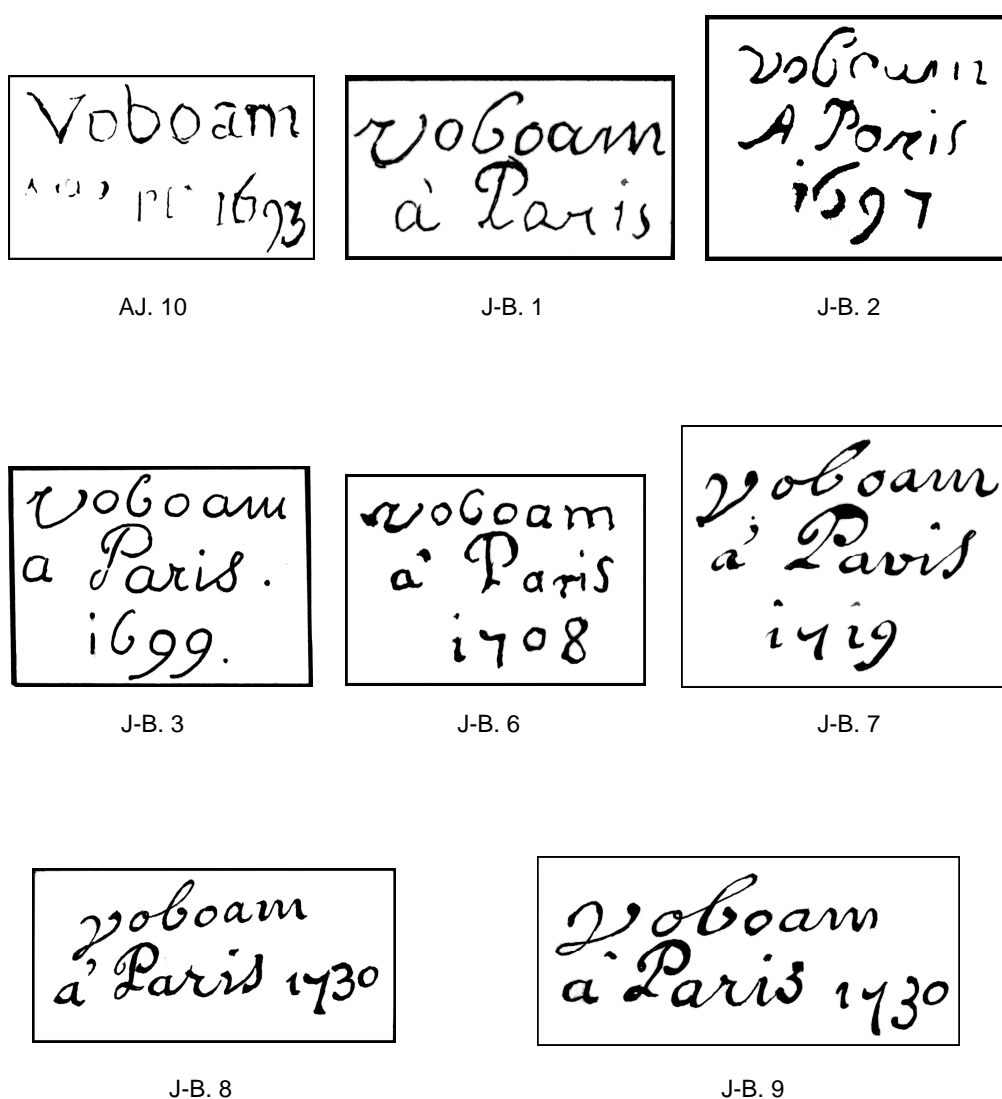 Voboam
1693
AJ. 10
voboam
à Paris
J-B. 1
voboam
A Paris
1697
J-B. 2
voboam
a Paris.
1699.
J-B. 3
voboam
à Paris
1708
J-B. 6
voboam
à Paris
1719
J-B. 7
voboam
à Paris 1730
J-B. 8
voboam
à Paris 1730
J-B. 9